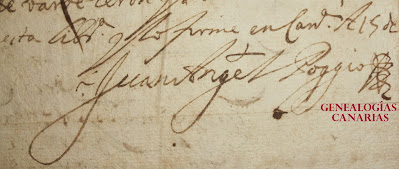 esta libr.ª y lo firme en Can.ª A 15 de
Juan Angel Poggio
GENEALOGÍAS
CANARIAS